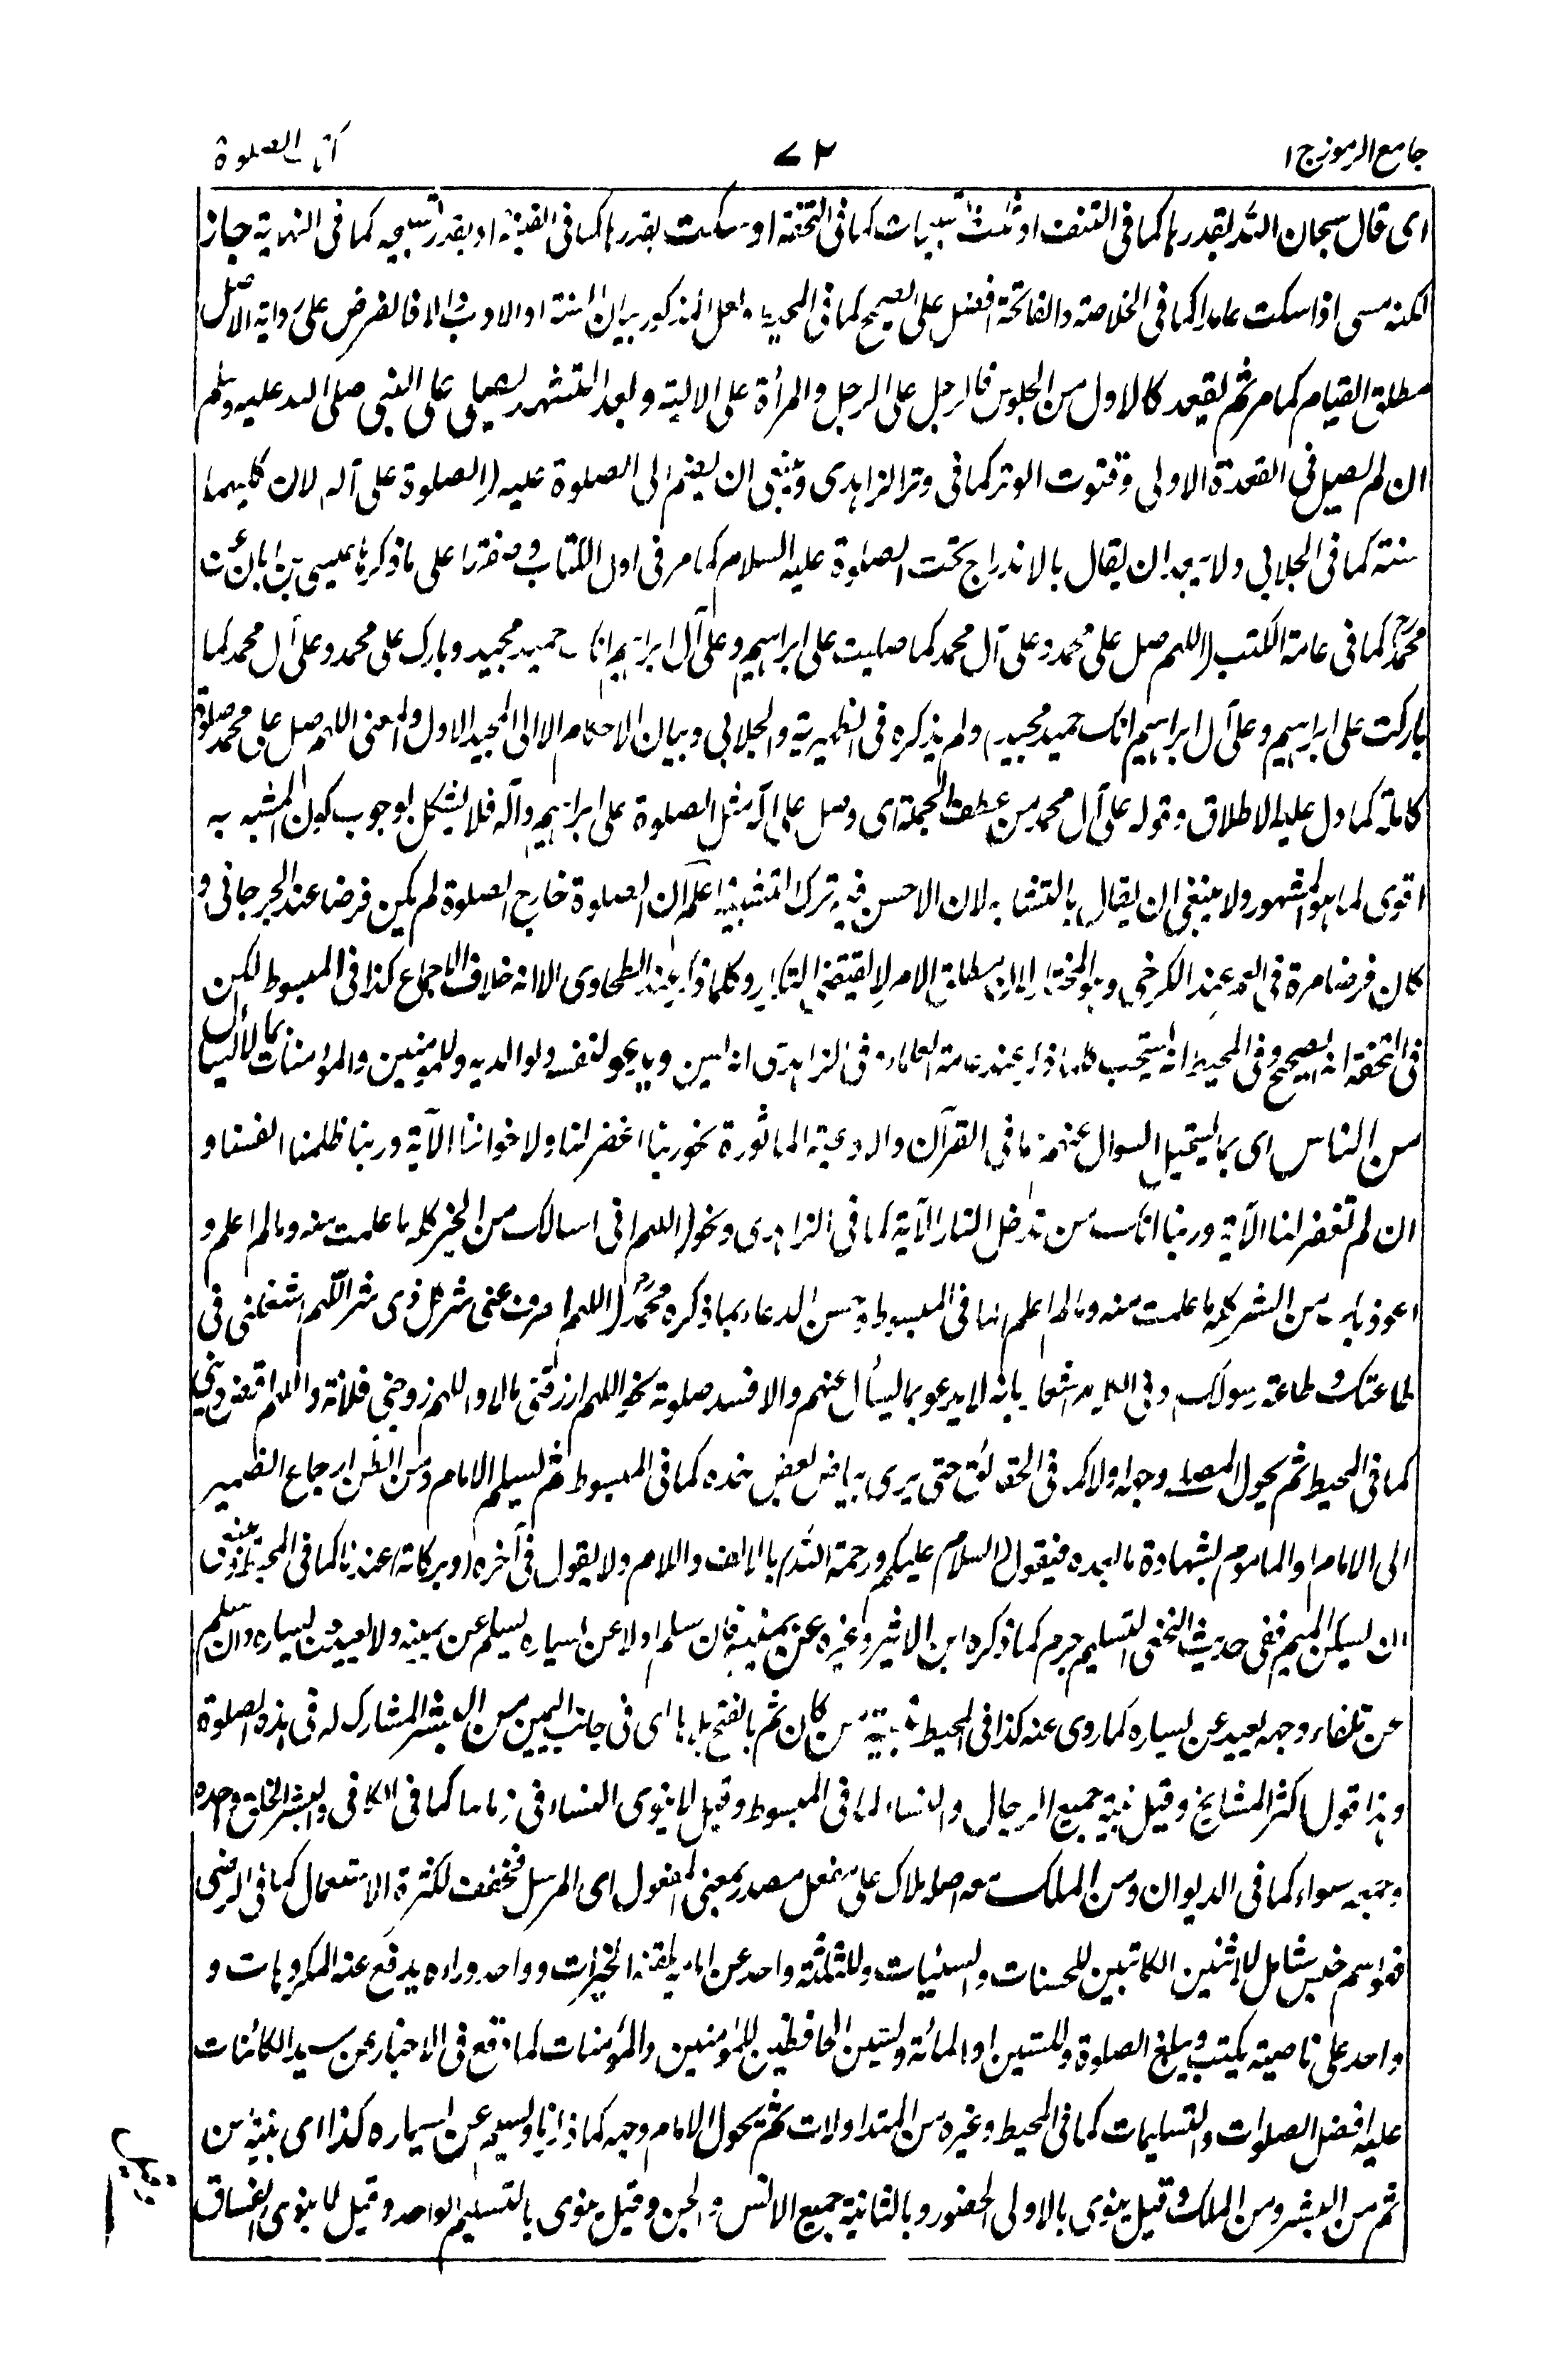 جامع الرموز ج ۱
۷۲
کتاب الصلوة
ای قال سبحان الله بقدرہا کما فی النتف او ثلث تسبیحات کما فی التحفة او سکت بقدرہا کما فی القنیة او بقدر تسبیحة کما فی النہایة جاز
لکنه مسی اذا سکت عامدا کما فی الخلاصة والفاتحة افضل علی الصحیح کما فی المحیط ولعل المذکور بیان السنة او الادب والا فالفرض علی روایة الاصل
مطلق القیام کما مر ثم یقعد کالاول من الجلوس فالرجل علی الرجل والمرأة علی الالیة وبعد التشہد یصلی علی النبی صلی الله علیه وسلم
ان لم یصل فی القعدة الاولی وقنوت الوتر کما فی وتر الزاہدی وینبغی ان یضم الی الصلوة علیه (الصلوة علی آله لان کلیہما
سنة کما فی الجلابی ولا یبعد ان یقال بالاندراج تحت الصلوة علیه السلام کما مر فی اول الکتاب و علی ما ذکره عیسی بن ابان عن
محمد کما فی عامة الکتب (اللہم صل علی محمد وعلی آل محمد کما صلیت علی ابراہیم وعلی آل ابراہیم انک حمید مجید وبارک علی محمد وعلی آل محمد کما
بارکت علی ابراہیم وعلی آل ابراہیم انک حمید مجید) ولم یذکره فی الظہیریة والجلابی وبیان الاحکام الا الی المجید الاول والمعنی اللہم صل علی محمد صلوة
کاملة کما دل علیه الاطلاق وقوله علی آل محمد من عطف الجملة ای وصل علی آله مثل الصلوة علی ابراہیم وآله فلا یشکل بوجوب کون المشبه به
اقوی لما ہو المشہور ولا ینبغی ان یقال بالتشابه لان الاحسن فیه ترک التشبیه اعلم ان الصلوة خارج الصلوة لم یکن فرضا عند الجرجانی و
کان فرضا مرة فی العمر عند الکرخی وہو المختار لان مطلق الامر لا یقتضی التکرار وکلما ذکر عند الطحاوی الا انه خلاف الاجماع کذا فی المبسوط لکن
فی التحفة انه الصحیح وفی المحیط انه یستحب کلما ذکر عند عامة العلماء وفی الزاہدی انه لیس ویدعو لنفسه ولوالدیه وللمؤمنین والمؤمنات بما لا یسأل
من الناس ای بما یستحیل السوال عنہم مما فی القرآن والادعیة الماثورة نحو ربنا اغفر لنا ولاخواننا الآیة وربنا ظلمنا انفسنا و
ان لم تغفر لنا الآیة وربنا انک من تدخل النار الآیة کما فی الزاہدی ونحو (اللہم انی اسالک من الخیر کله ما علمت منه وما لم اعلم و
اعوذ بک من الشر کله ما علمت منه وما لم اعلم) کما فی المبسوط ومن الدعاء بما ذکره محمد (اللہم اصرف عنی شر کل ذی شر اللہم اشغلنی فی
طاعتک وطاعة رسولک) وفی الکلام اشعار بانه لا یدعو بما یسأل عنہم والا فسد صلوته نحو اللہم ارزقنی مالا واللہم زوجنی فلانة واللہم اقض دینی
کما فی المحیط ثم یحول المصلی وجہه اولا کما فی الحقائق حتی یری بیاض بعض خده کما فی المبسوط ثم یسلم الامام ومن الظن ارجاع الضمیر
الی الامام او الماموم بشہادة ما بعده فیقول (السلام علیکم ورحمة الله) بالالف واللام ولا یقول فی آخره (وبرکاته) عندنا کما فی المحیط وعنه
ان یسکن المیم ففی حدیث النخعی التسلیم جزم کما ذکره ابن الاثیر وغیره عن یمینه فان سلم اولا عن یساره یسلم عن یمینه ولا یعید عن یساره وان سلم
عن تلقاء وجہه یعید عن یساره کما روی عنه کذا فی المحیط بنیة من کان ثم بالفتح بلا ہا ای فی جانب الیمین من البشر المشارک له فی ہذه الصلوة
وہذا قول اکثر المشایخ وقیل نیة جمیع الرجال والنساء کما فی المبسوط وقیل لا ینوی النساء فی زماننا کما فی الکافی والبشر الخلق واحده
وجمعه سواء کما فی الدیوان ومن الملک معه اصله ملاک علی مفعل مصدر بمعنی المفعول ای المرسل فخففت لکثرة الاستعمال کما فی الرضی
فہو اسم جنس شامل للاثنین الکاتبین للحسنات والسیئات وللثلثة واحد عن امامه یلقنه الخیرات وواحد وراءه یدفع عنه المکروہات و
واحد علی ناصیته یکتب ویبلغ الصلوة وللستین او المائة وستین الحافظین للمؤمنین والمؤمنات کما وقع فی الاخبار عن سید الکائنات
علیه افضل الصلوات والتسلیمات کما فی المحیط وغیره من المتداولات ثم یحول الامام وجہه کما ذکرنا ویسلم عن یساره کذا ای بنیة من
ثم من البشر ومن الملک وقیل ینوی بالاولی الحضور وبالثانیة جمیع الانس والجن وقیل ینوی بالتسلیم الواحد وقیل لا ینوی الفساق